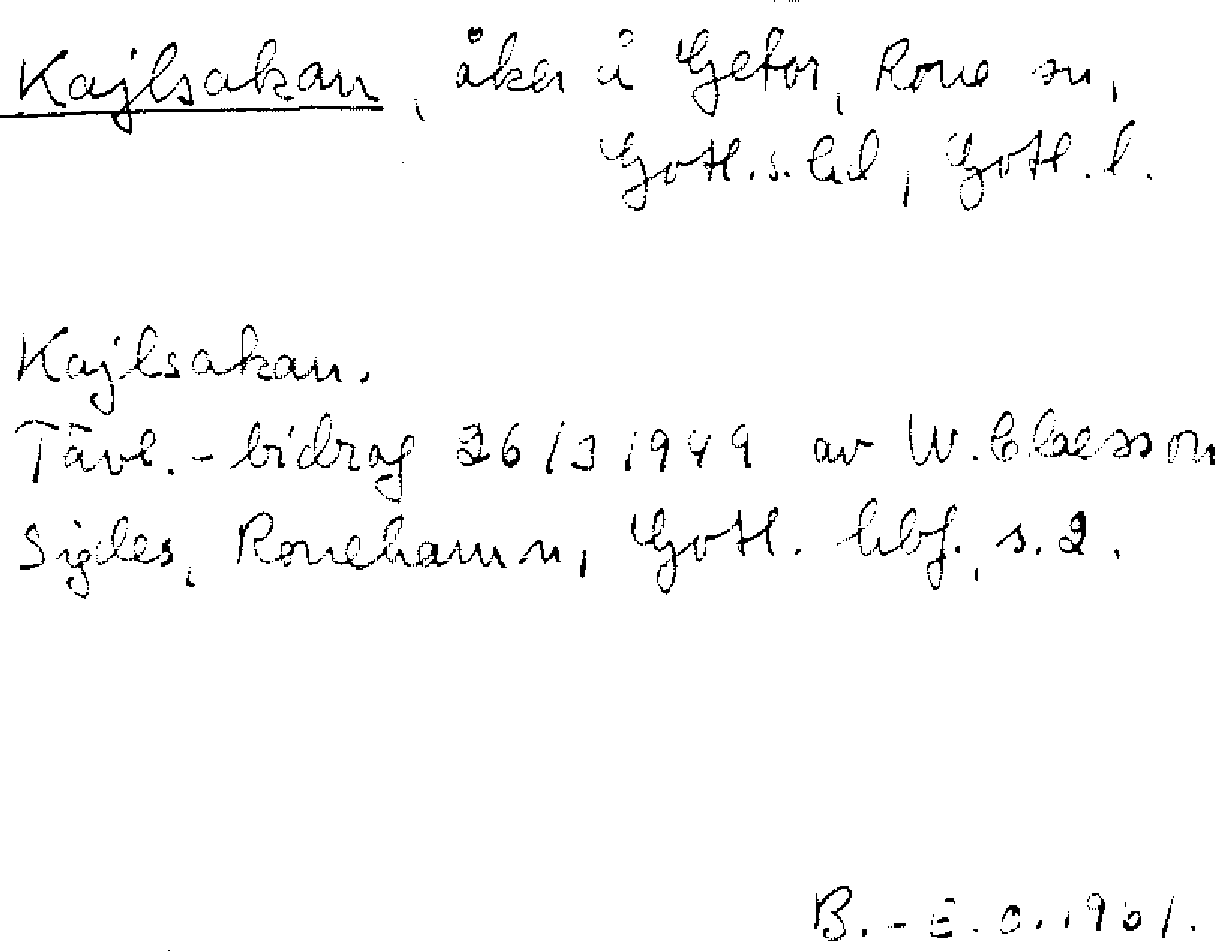 Kajlsakan, åker å Gefor, Rone sn,
Gotl.s. hd, Gotl. l.
Kajlsakan.
Tävl.-bidrag 26/3 1949 av W. Claesson
Sigdes, Ronehamn, Gotl. hbf., s. 2.
B.-E. O. 1961.